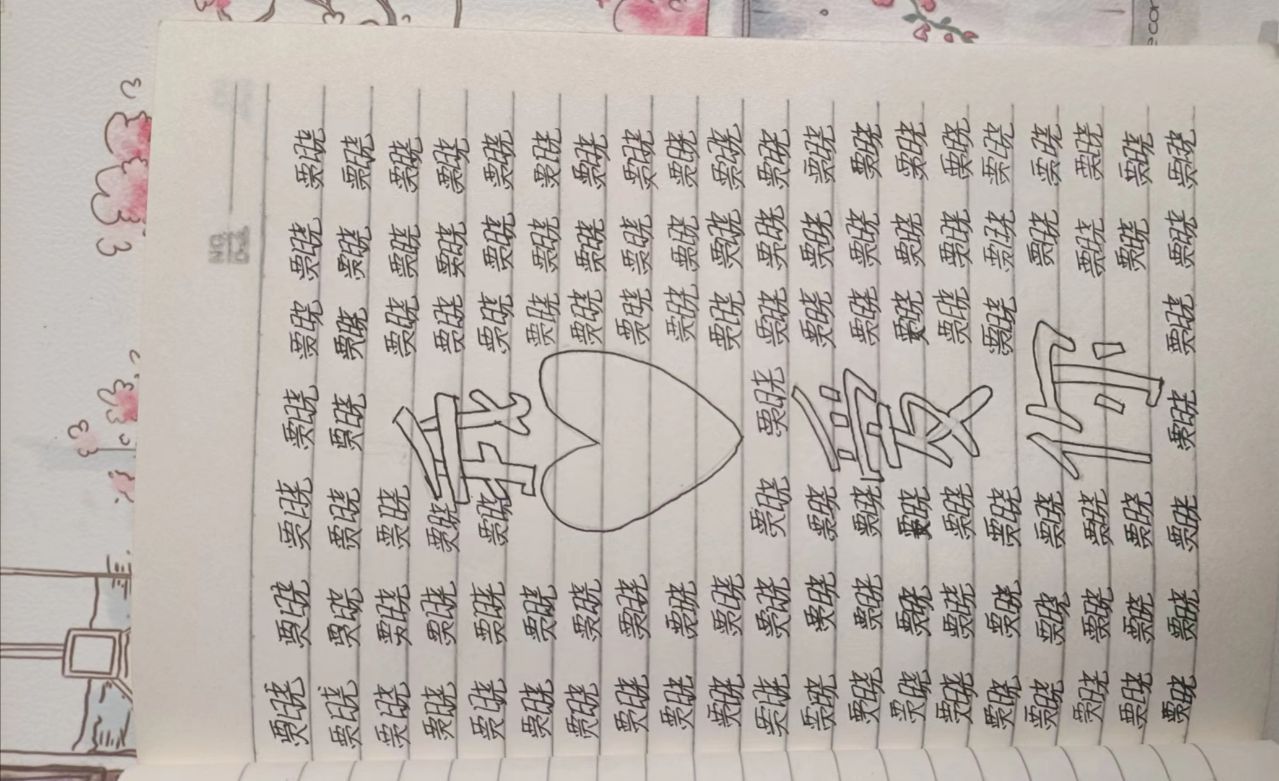 贾晓 贾晓 贾晓 贾晓 贾晓 贾晓 贾晓
贾晓 贾晓 贾晓 贾晓 贾晓 贾晓 贾晓
贾晓 贾晓 贾晓 贾晓 贾晓 贾晓
贾晓 贾晓 贾晓 我 贾晓 贾晓 贾晓
贾晓 贾晓 贾晓 贾晓 贾晓 贾晓
贾晓 贾晓 贾晓 贾晓 贾晓
贾晓 贾晓 贾晓 贾晓 贾晓
贾晓 贾晓 贾晓 贾晓 贾晓
贾晓 贾晓 贾晓 贾晓 贾晓
贾晓 贾晓 贾晓 贾晓 贾晓
贾晓 贾晓 贾晓 贾晓 贾晓 贾晓 贾晓
贾晓 贾晓 贾晓 贾晓 贾晓 贾晓
贾晓 贾晓 贾晓 贾晓 贾晓 贾晓
贾晓 贾晓 贾晓 爱 贾晓 贾晓 贾晓
贾晓 贾晓 贾晓 贾晓 贾晓 贾晓
贾晓 贾晓 贾晓 贾晓 贾晓 贾晓
贾晓 贾晓 贾晓 贾晓 贾晓
贾晓 贾晓 贾晓 你 贾晓 贾晓
贾晓 贾晓 贾晓 贾晓 贾晓
贾晓 贾晓 贾晓 贾晓 贾晓 贾晓 贾晓